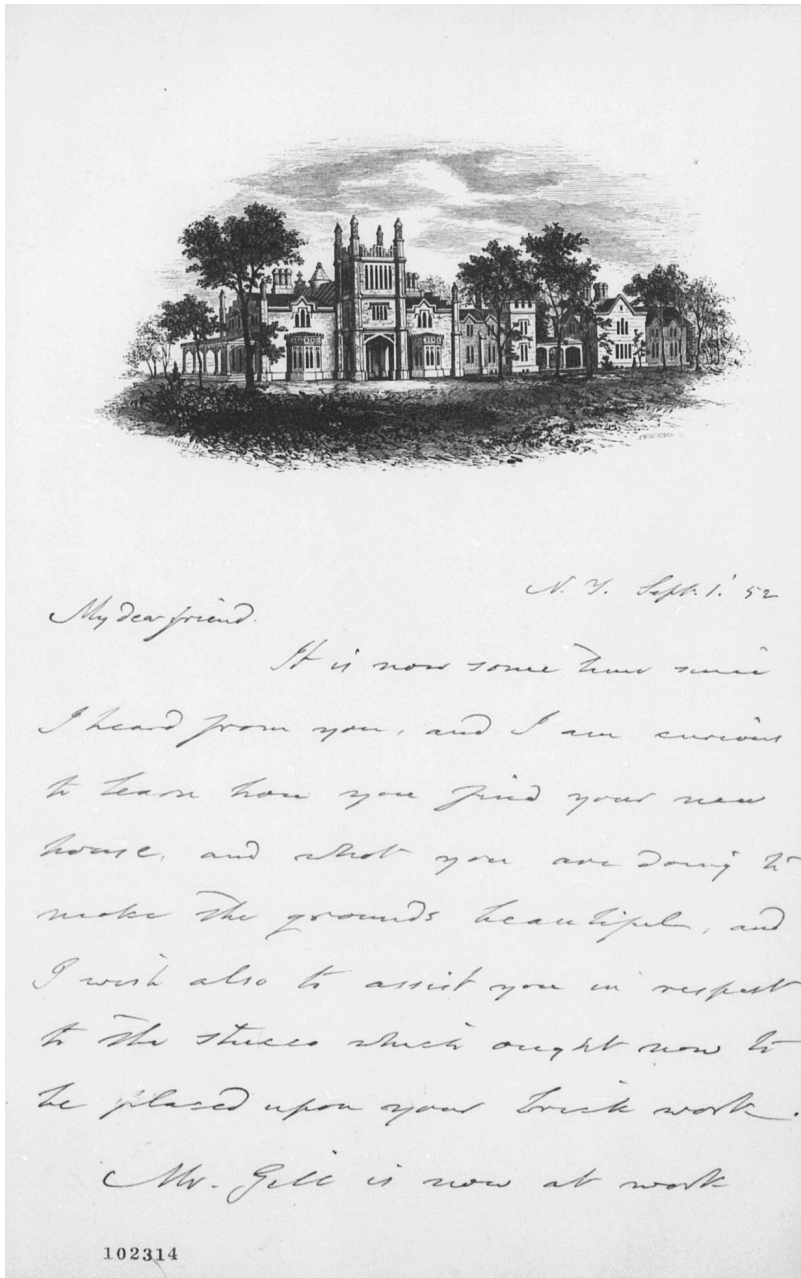 DAVIS
N. Y. Sept. 1. 52
My dear friend.
It is now some time since
I heard from you, and I am curious
to learn how you find your new
house, and what you are doing to
make the grounds beautiful, and
I wish also to assist you in respect
to the stucco which ought now to
be placed upon your brick work.
Mr. Gill is now at work
102314